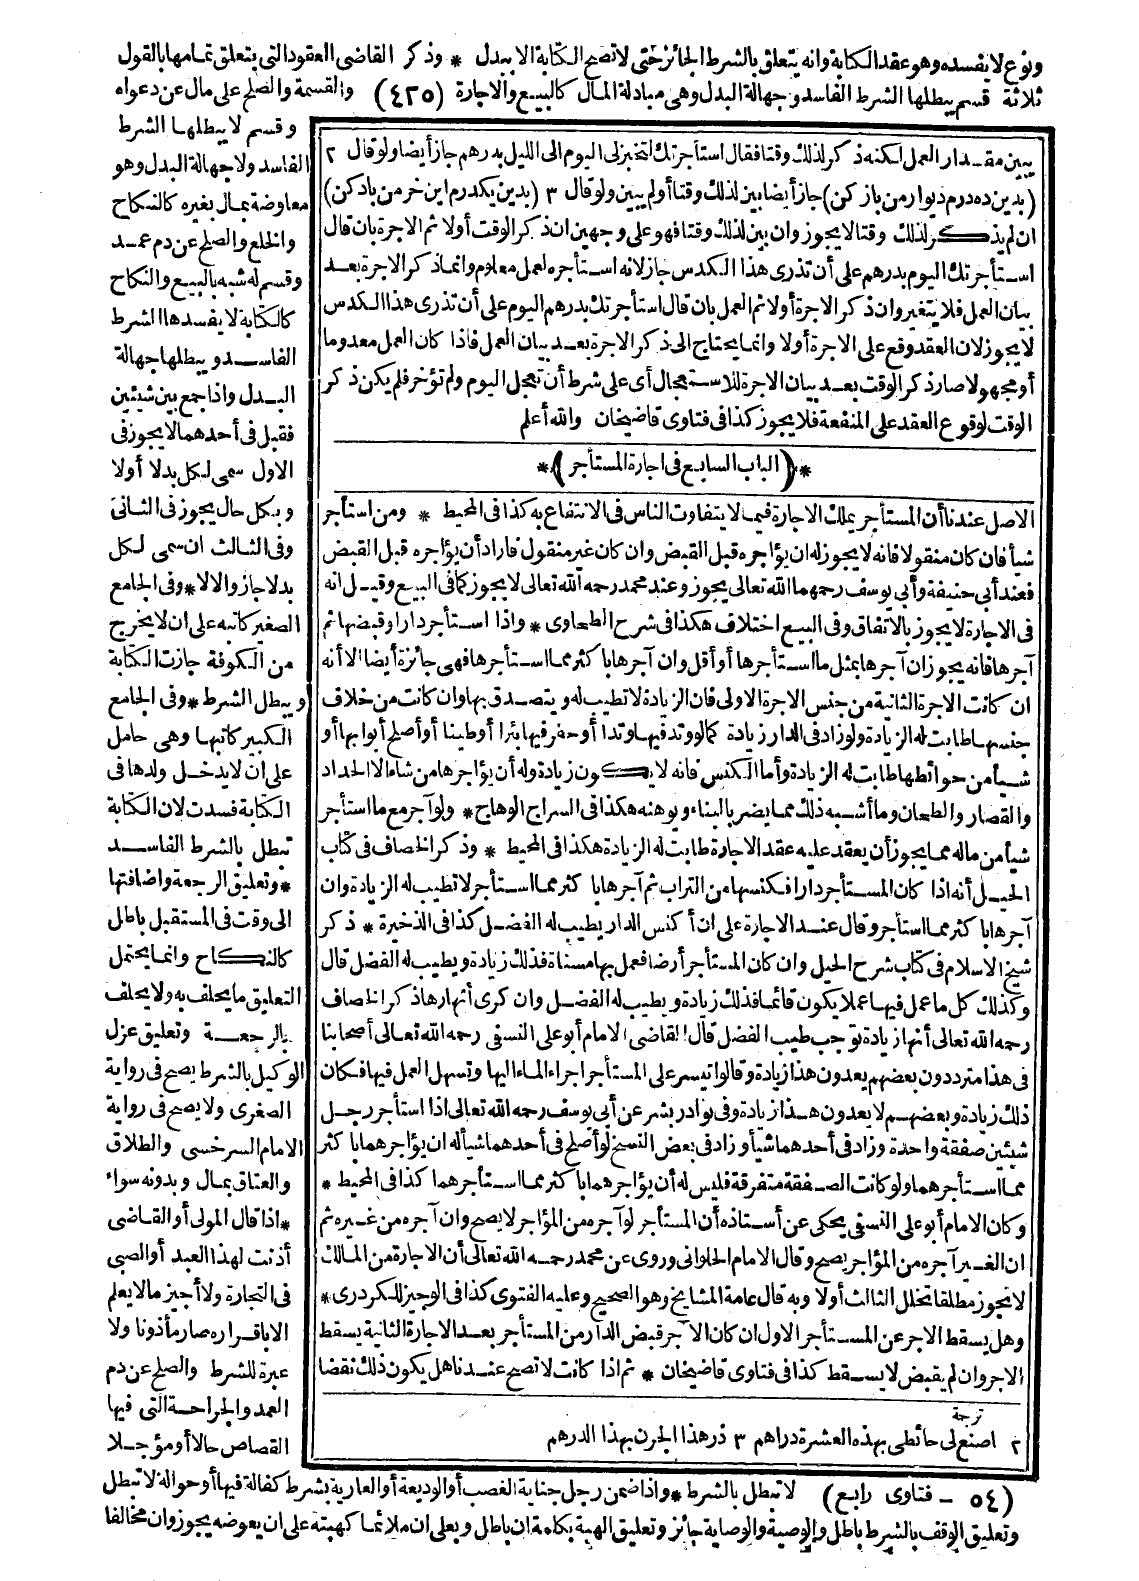 ونوع لا يفسده وهو عقد الكتابة وانه يتعلق بالشرط الجائز حتى لا تصح الكتابة الا ببدل * وذكر القاضى العقود التى يتعلق تمامها بالقول
ثلاثة قسم يبطلها الشرط الفاسد وجهالة البدل وهى مبادلة المال كالبيع والاجارة (٤٢٥) والقسمة والصلح على مال عن دعواه
يبين مقدار العمل لكنه ذكر لذلك وقتا فقال استأجرتك لتخبز لى اليوم الى الليل بدرهم جاز أيضا ولو قال ٢
(بدين ده درم ديوار من باز كن) جاز أيضا بين لذلك وقتا أو لم يبين ولو قال ٣ (بدين يكدرم اين خر من باد كن)
ان لم يذكر لذلك وقتا لا يجوز وان بين لذلك وقتا فهو على وجهين ان ذكر الوقت أولا ثم الاجرة بان قال
استأجرتك اليوم بدرهم على أن تذرى هذا الكدس جاز لانه استأجره لعمل معلوم وانما ذكر الاجرة بعد
بيان العمل فلا يتغير وان ذكر الاجرة أولا ثم العمل بان قال استأجرتك بدرهم اليوم على أن تذرى هذا الكدس
لا يجوز لان العقد وقع على الاجرة أولا وانما يحتاج الى ذكر الاجرة بعد بيان العمل فاذا كان العمل معدوما
أو مجهولا صار ذكر الوقت بعد بيان الاجرة للاستعجال أى على شرط أن تعجل اليوم ولم تؤخر فلم يكن ذكر
الوقت لوقوع العقد على المنفعة فلا يجوز كذا فى فتاوى قاضيخان والله أعلم
*(الباب السابع فى اجارة المستأجر)*
الاصل عندنا أن المستأجر يملك الاجارة فيما لا يتفاوت الناس فى الانتفاع به كذا فى المحيط * ومن استأجر
شيأ فان كان منقولا فانه لا يجوز له ان يؤاجره قبل القبض وان كان غير منقول فاراد أن يؤاجره قبل القبض
فعند أبى حنيفة وأبى يوسف رحمهما الله تعالى يجوز وعند محمد رحمه الله تعالى لا يجوز كما فى البيع وقيل انه
فى الاجارة لا يجوز بالاتفاق وفى البيع اختلاف هكذا فى شرح الطحاوى * واذا استأجر دارا وقبضها ثم
آجرها فانه يجوز ان آجرها بمثل ما استأجرها أو أقل وان آجرها باكثر مما استأجرها فهى جائزة أيضا الا أنه
ان كانت الاجرة الثانية من جنس الاجرة الاولى فان الزيادة لا تطيب له ويتصدق بها وان كانت من خلاف
جنسها طابت له الزيادة ولو زاد فى الدار زيادة كما لو وتد فيها وتدا أو حفر فيها بئرا أو طينا أو أصلح أبوابها أو
شيأ من حوائطها طابت له الزيادة وأما الكنس فانه لا يكون زيادة وله أن يؤاجرها من شاء الا الحداد
والقصار والطحان وما أشبه ذلك مما يضر بالبناء ويوهنه هكذا فى السراج الوهاج * ولو آجر مع ما استأجر
شيأ من ماله مما يجوز أن يعقد عليه عقد الاجارة طابت له الزيادة هكذا فى المحيط * وذكر الخصاف فى كتاب
الحيل أنه اذا كان المستأجر دارا فكنسها من التراب ثم آجرها باكثر مما استأجر لا تطيب له الزيادة وان
آجرها باكثر مما استأجر وقال عند الاجارة على ان أكنس الدار يطيب له الفضل كذا فى الذخيرة * ذكر
شيخ الاسلام فى كتاب شرح الحيل وان كان المستأجر أرضا فعمل بها مسناة فذلك زيادة ويطيب له الفضل قال
وكذلك كل ما عمل فيها عملا يكون قائما فذلك زيادة ويطيب له الفضل وان كرى أنهارها ذكر الخصاف
رحمه الله تعالى أنها زيادة توجب طيب الفضل قال القاضى الامام أبو على النسفى رحمه الله تعالى أصحابنا
فى هذا مترددون بعضهم يعدون هذا زيادة وقالوا تيسر على المستأجر اجراء الماء اليها وتسهل العمل فيها فكان
ذلك زيادة وبعضهم لا يعدون هذا زيادة وفى نوادر بشر عن أبى يوسف رحمه الله تعالى اذا استأجر رجل
شيئين صفقة واحدة وزاد فى أحدهما شيأ وزاد فى بعض النسخ لو أصلح فى أحدهما شيأ له ان يؤاجرهما باكثر
مما استأجرهما ولو كانت الصفقة متفرقة فليس له أن يؤاجرهما باكثر مما استأجرهما كذا فى المحيط *
وكان الامام أبو على النسفى يحكى عن أستاذه أن المستأجر لو آجره من المؤاجر لا يصح وان آجره من غيره ثم
ان الغير آجره من المؤاجر يصح وقال الامام الحلوانى وروى عن محمد رحمه الله تعالى أن الاجارة من المالك
لا تجوز مطلقا تخلل الثالث أولا وبه قال عامة المشايخ وهو الصحيح وعليه الفتوى كذا فى الوجيز للكردرى *
وهل يسقط الاجر عن المستأجر الاول ان كان الآجر قبض الدار من المستأجر بعد الاجارة الثانية يسقط
الاجر وان لم يقبض لا يسقط كذا فى فتاوى قاضيخان * ثم اذا كانت لا تصح عندنا هل يكون ذلك نقضا
ترجمة
٢ اصنع لى حائطى بهذه العشرة دراهم ٣ ذر هذا الجرن بهذا الدرهم
وقسم لا يبطلها الشرط
الفاسد ولا جهالة البدل وهو
معاوضة مال بغيره كالنكاح
والخلع والصلح عن دم عمد
وقسم له شبه بالبيع والنكاح
كالكتابة لا يفسدها الشرط
الفاسد ويبطلها جهالة
البدل واذا جمع بين شيئين
فقبل فى أحدهما لا يجوز فى
الاول سمى لكل بدلا أولا
وبكل حال يجوز فى الثانى
وفى الثالث ان سمى لكل
بدلا جاز والالا * وفى الجامع
الصغير كاتبه على ان لا يخرج
من الكوفة جازت الكتابة
ويبطل الشرط * وفى الجامع
الكبير كاتبها وهى حامل
على ان لا يدخل ولدها فى
الكتابة فسدت لان الكتابة
تبطل بالشرط الفاسد
* وتعليق الرجعة واضافتها
الى وقت فى المستقبل باطل
كالنكاح وانما يحتمل
التعليق ما يحلف به ولا يحلف
بالرجعة وتعليق عزل
الوكيل بالشرط يصح فى رواية
الصغرى ولا يصح فى رواية
الامام السرخسى والطلاق
والعتاق بمال وبدونه سواء
* اذا قال المولى أو القاضى
أذنت لهذا العبد أو الصبى
فى التجارة ولا أجيز ما لا يعلم
الا باقراره صار مأذونا ولا
عبرة للشرط والصلح عن دم
العمد والجراحة التى فيها
القصاص حالا أو مؤجلا
(٥٤ - فتاوى رابع) لا تبطل بالشرط * واذا ضمن رجل جناية الغصب أو الوديعة أو العارية بشرط كفالة فيها أو حوالة لا تبطل
وتعليق الوقف بالشرط باطل والوصية والوصاية جائز وتعليق الهبة بكلمة ان باطل وبعلى ان ملائما كهبته على ان يعوضه يجوز وان مخالفا